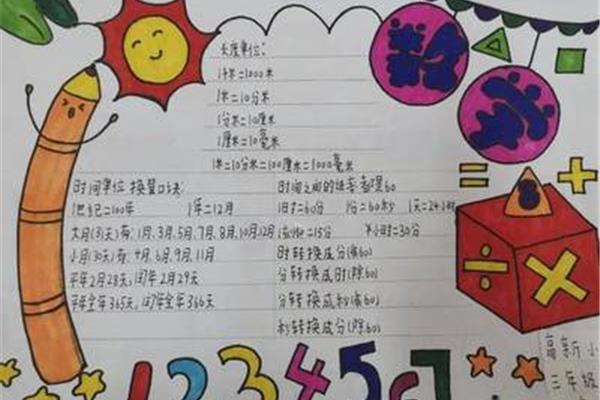 数学
长度单位:
1千米=1000米
1米=10分米
1分米=10厘米
1厘米=10毫米
1米=10分米=100厘米=1000毫米
时间单位换算口诀:
1世纪=100年 1年=12月
大月(31天)有:1月,3月,5月,7月,8月,10月,12月
小月(30天)有:4月,6月,9月,11月
平年2月28天,闰年2月29天
平年全年365天,闰年全年366天
时间之间的进率都是60
1时=60分 1分=60秒 1天=24小时
1刻钟=15分 半小时=30分
时转换成分(乘60)
分转换成时(除60)
分转换成秒(乘60)
秒转换成分(除60)
= +
8
÷ ×
1 2 3 4 5 6 7
高新小
三年级